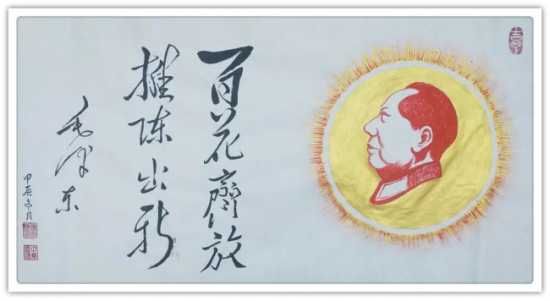 百花齊放
推陈出新
毛泽东
甲辰冬月